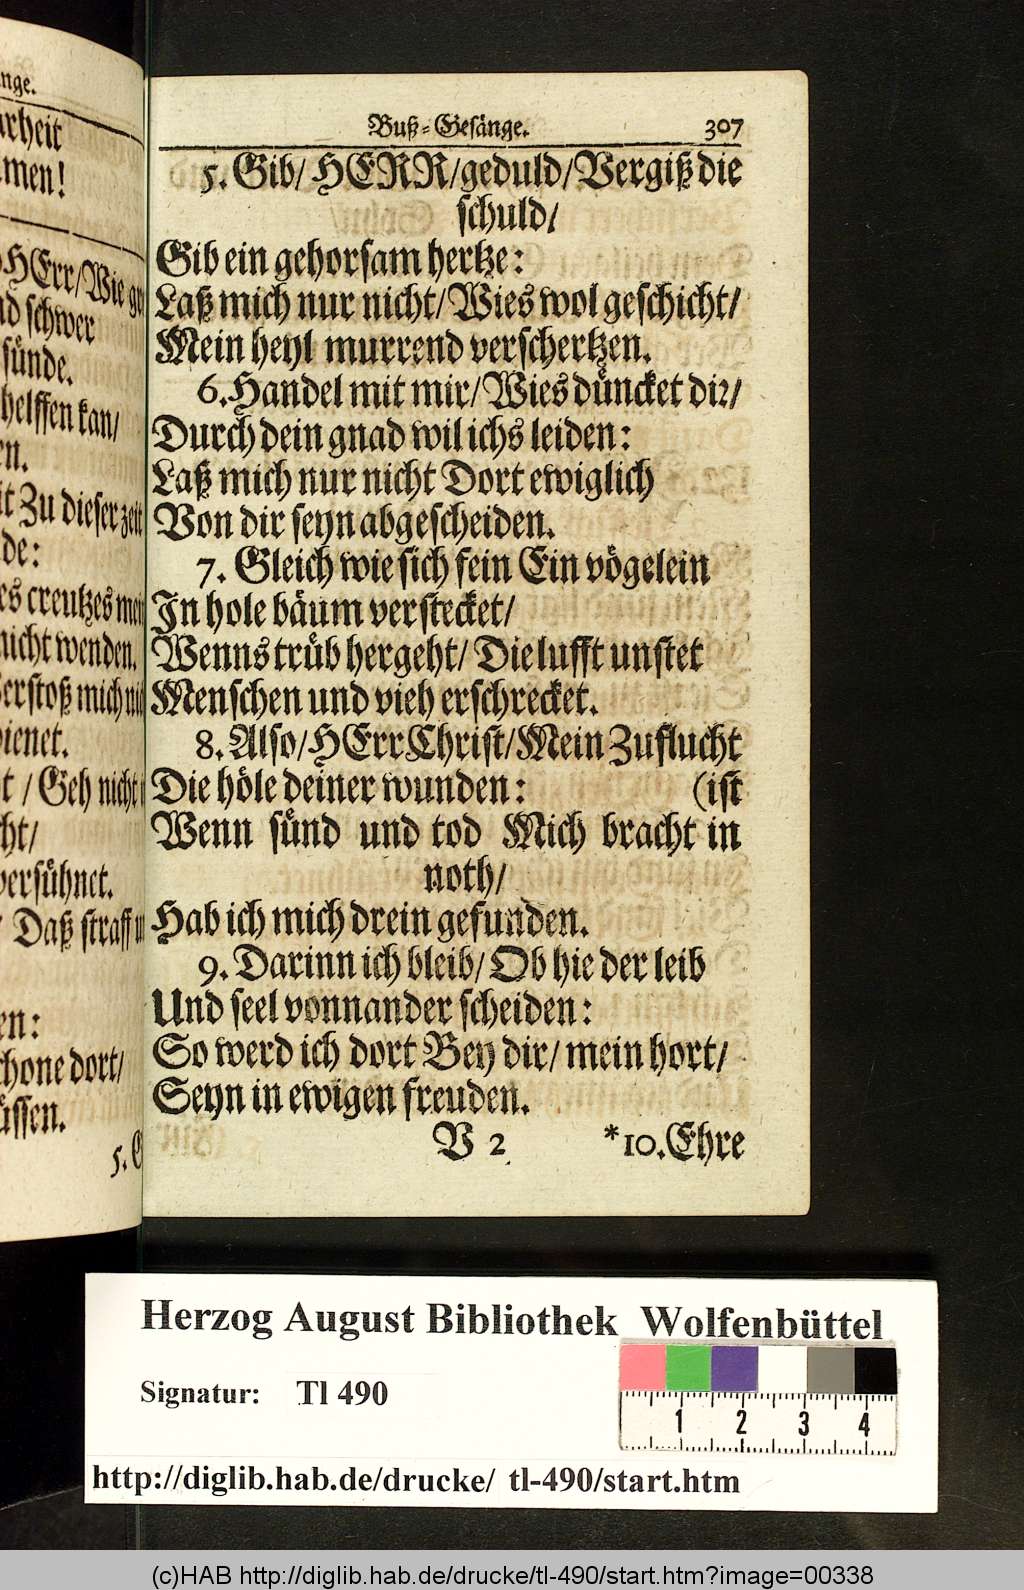 nge.
rheit
men!
HErr/Wie
nd schwer
sünde.
helffen kan/
en.
it Zu dieser zeit
de:
es creutzes
nicht wenden.
Verstoß mich
dienet.
t / Geh nicht
ht/
versühnet.
Daß straff
en:
schone dort/
üssen.
5. G
Buß-Gesänge. 307
5. Gib/ HERR/geduld/Vergiß die
schuld/
Gib ein gehorsam hertze:
Laß mich nur nicht/Wies wol geschicht/
Mein heyl murrend verschertzen.
6. Handel mit mir/Wies düncket dir/
Durch dein gnad wil ichs leiden:
Laß mich nur nicht Dort ewiglich
Von dir seyn abgescheiden.
7. Gleich wie sich fein Ein vögelein
In hole bäum verstecket/
Wenns trüb hergeht/ Die lufft unstet
Menschen und vieh erschrecket.
8. Also/HErr Christ/Mein Zuflucht
Die höle deiner wunden: (ist
Wenn sünd und tod Mich bracht in
noth/
Hab ich mich drein gefunden.
9. Darinn ich bleib/ Ob hie der leib
Und seel vonnander scheiden:
So werd ich dort Bey dir/ mein hort/
Seyn in ewigen freuden.
V 2 *10. Ehre
Herzog August Bibliothek Wolfenbüttel
Signatur: Tl 490
1 2 3 4
http://diglib.hab.de/drucke/ tl-490/start.htm
(c)HAB http://diglib.hab.de/drucke/tl-490/start.htm?image=00338